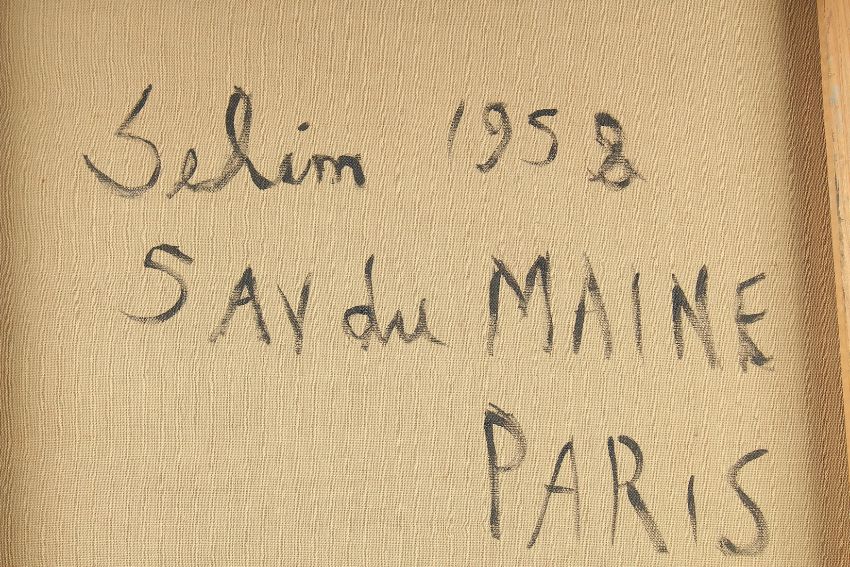 Selim 1958
5 AV du MAINE
PARIS